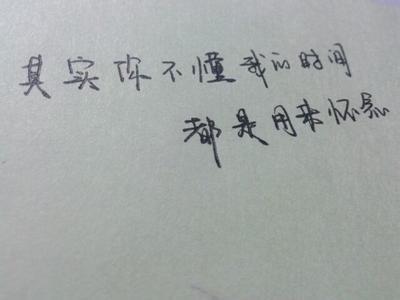 其实你不懂我的时间
都是用来怀念